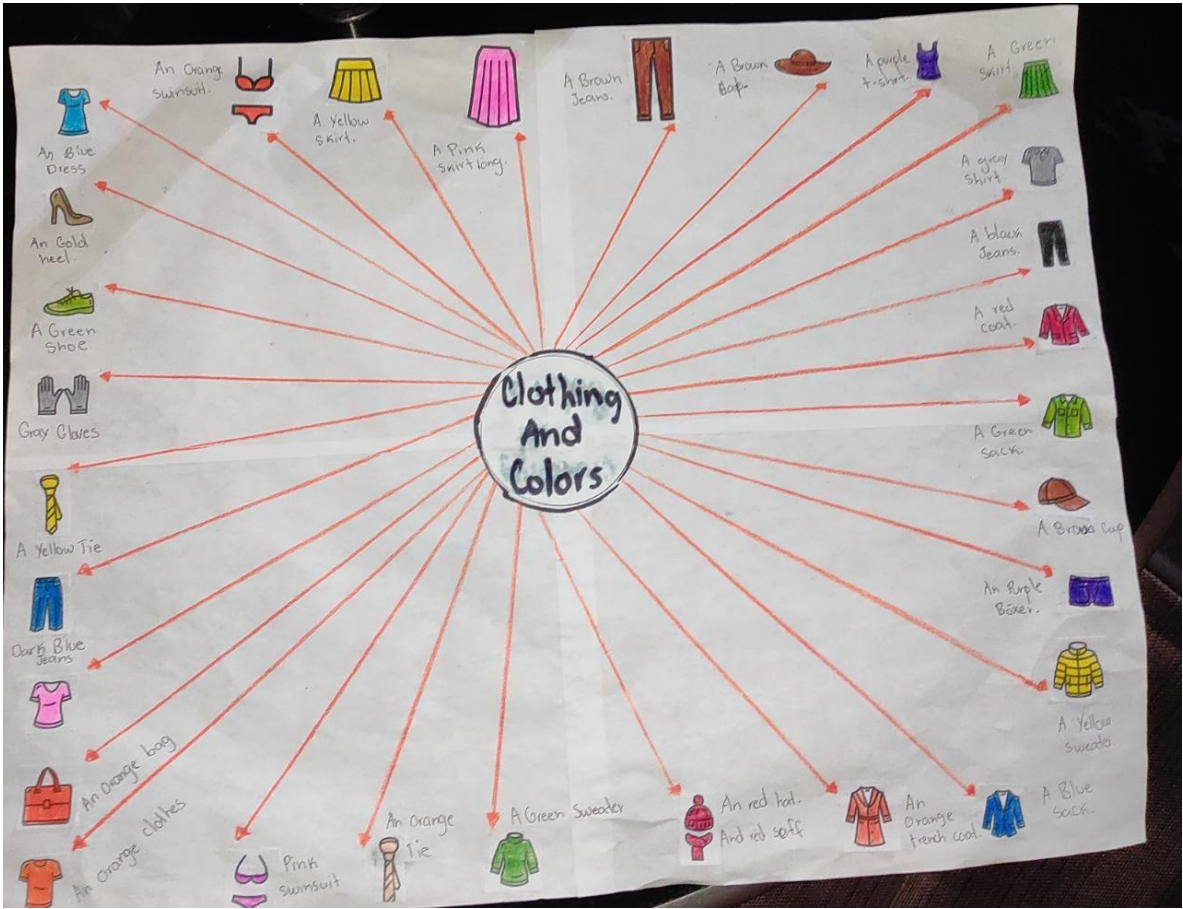 Clothing
And
Colors
An Orange
swinsuit.
A Yellow
Skirt.
A Pink
skirt long.
A Brown
Jeans.
A Brown
A purple
t-shirt.
A Green
Skirt
A gray
Shirt
A black
Jeans.
A red
coat.
A Green
sack
A Brown Cap
An Purple
Boxer.
A Yellow
sweater
A Blue
Sack.
An
Orange
trench coat.
An red hat.
And red saff
A Green Sweater
An Orange
Tie
Pink
swinsuit
An Orange clothes
An Orange bag
Dark Blue
Jeans
A Yellow Tie
Gray Gloves
A Green
Shoe
An Gold
heel.
An Blue
Dress